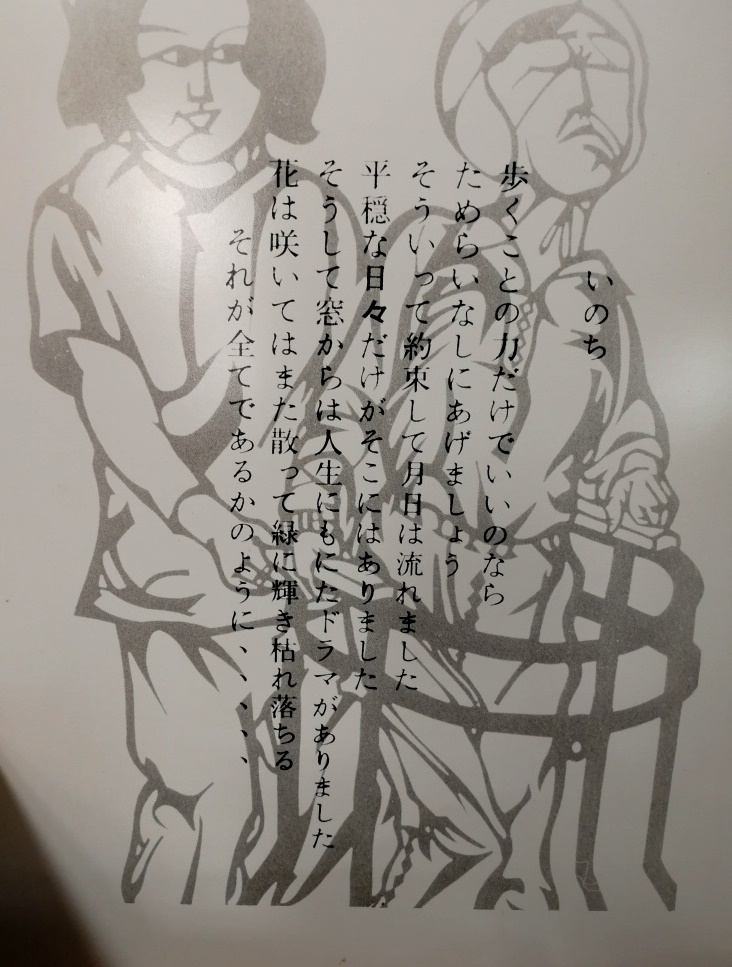 いのち
歩くことの力だけでいいのなら
ためらいなしにあげましょう
そういって約束して月日は流れました
平穏な日々だけがそこにはありました
そうして窓からは人生にもにたドラマがありました
花は咲いてはまた散って緑に輝き枯れ落ちる
それが全てであるかのように、、、、、